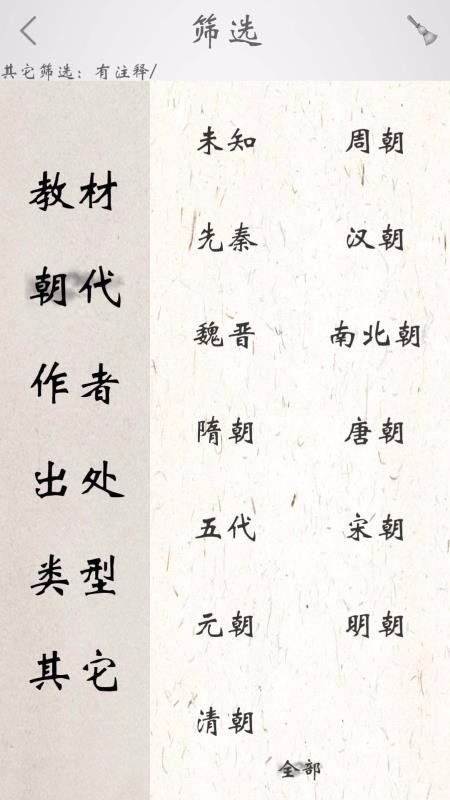 筛选
其它筛选：有注释/
教材
朝代
作者
出处
类型
其它
未知 周朝
先秦 汉朝
魏晋 南北朝
隋朝 唐朝
五代 宋朝
元朝 明朝
清朝
全部